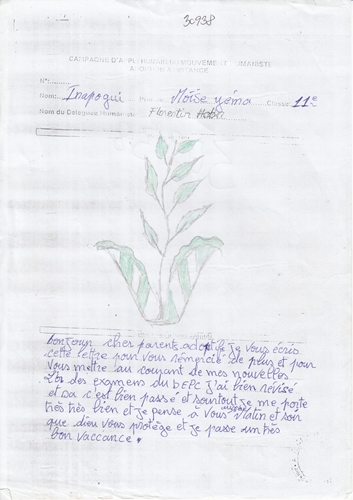 30938
CAMPAGNE D'APPUI HUMAIN DU MOUVEMENT HUMANISTE
A DISTANCE
N°:
Nom: Inapogui Prénom: Moïse yéma Classe: 11e
Nom du Délégué Humaniste: Florentin Haba
bonjour cher parents adoptifs je vous écris
cette lettre pour vous remercie de plus et pour
vous mettre au courant de mes nouvelles
Lors des examens du BEPC j'ai bien révisé
et sa c'est bien passé et sourtout je me porte
très très bien et je pense à vous matin et soir
que dieu vous protège et je passe un très
bon vaccance.